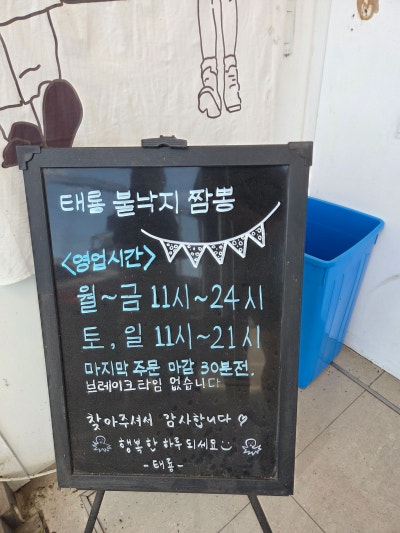 태룡 불낙지 짬뽕
<영업시간>
월~금 11시~24시
토, 일 11시~21시
마지막 주문 마감 30분전.
브레이크타임 없습니다
찾아주셔서 감사합니다 ♡
행복한 하루 되세요
-태룡-